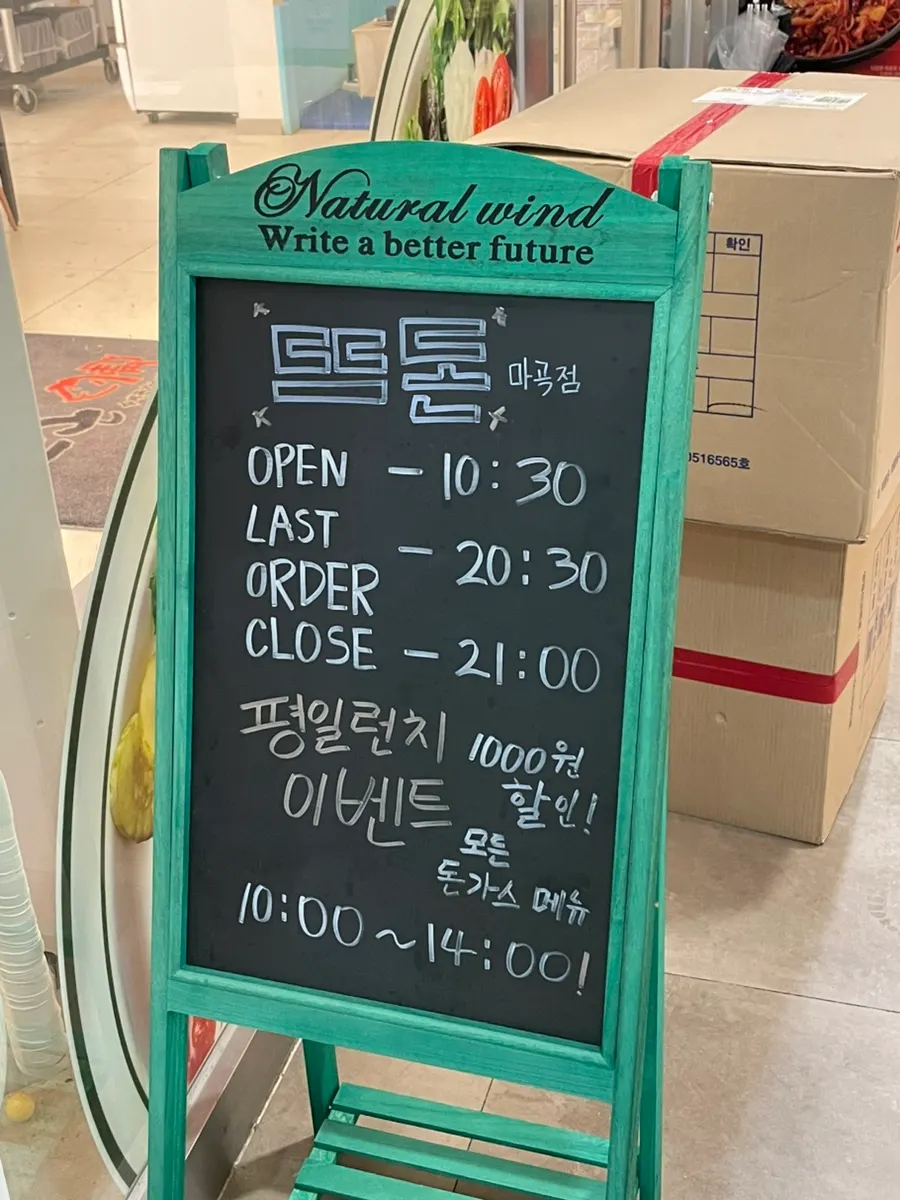 Natural wind
Write a better future
뜨돈 마곡점
OPEN - 10:30
LAST
ORDER - 20:30
CLOSE - 21:00
평일런치
이벤트
1000원
할인!
모든
돈가스 메뉴
10:00~14:00!
확인
0516565호